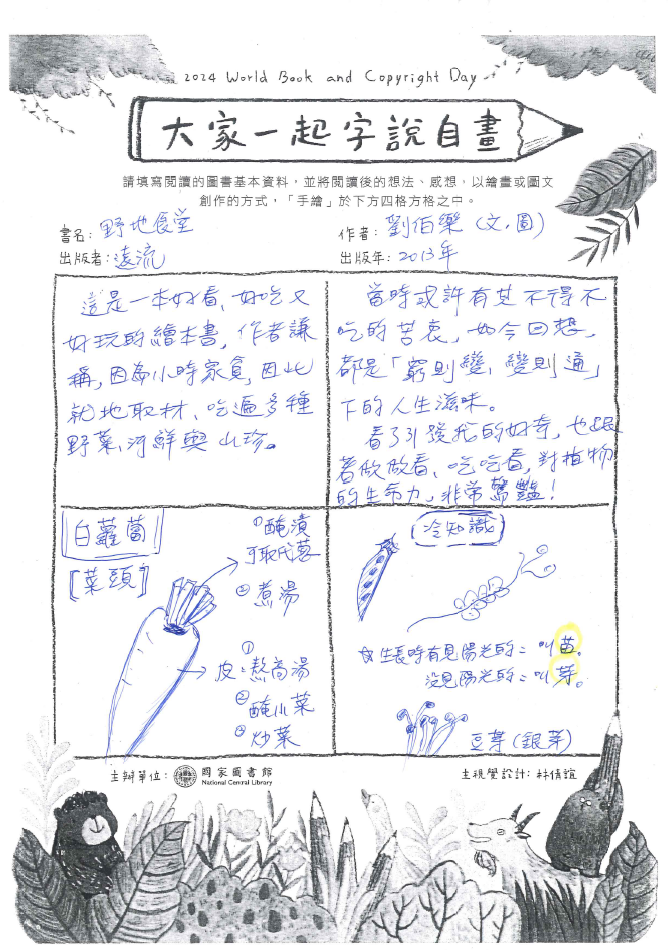 2024 World Book and Copyright Day
大家一起字說自畫
請填寫閱讀的圖書基本資料,並將閱讀後的想法、感想,以繪畫或圖文
創作的方式,「手繪」於下方四格方格之中。
書名: 野地食堂
作者: 劉伯樂(文.圖)
出版者: 遠流
出版年: 2013年
這是一本好看、好吃又
好玩的繪本書,作者謙
稱,因為小時家貧,因此
就地取材、吃遍多種
野菜、河鮮與山珍。
當時或許有其不得不
吃的苦衷,如今回想,
都是「窮則變、變則通」
下的人生滋味。
看了引發我的好奇,也跟
著做做看、吃吃看,對植物
的生命力,非常驚豔!
白蘿蔔
[菜頭]
①醃漬
可取代蔥
②煮湯
①
皮:熬高湯
②醃小菜
③炒菜
冷知識
☆生長時有見陽光的:叫苗。
沒見陽光的:叫芽。
豆芽(銀芽)
主辦單位: 國家圖書館
National Central Library
主視覺設計: 林倩誼